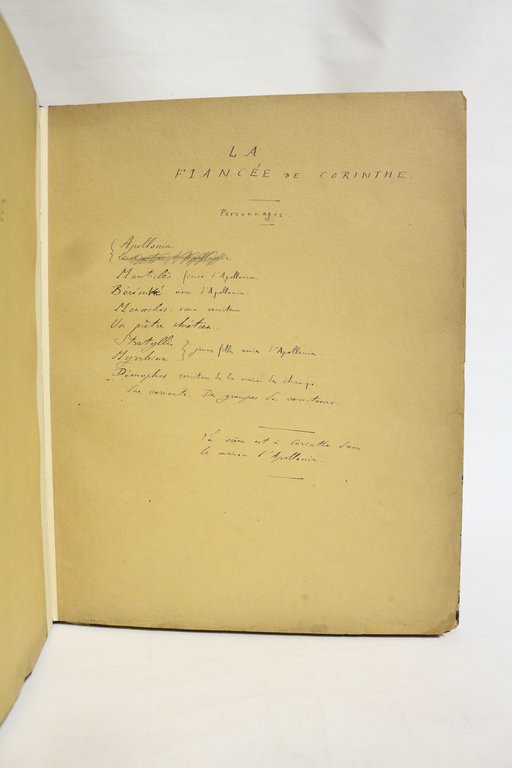 LA
FIANCÉE DE CORINTHE.
Personnages.
Apollonia
Manticlès fiancé d'Apollonia
Bérénice mère d'Apollonia
Menœchos vieux serviteur
Un prêtre chrétien
Stratyllis
Myrrhina } jeunes filles amies d'Apollonia
Démophos serviteur de la maison des champs
Une servante. Des groupes de serviteurs.
La scène est à Corinthe dans
la maison d'Apollonia